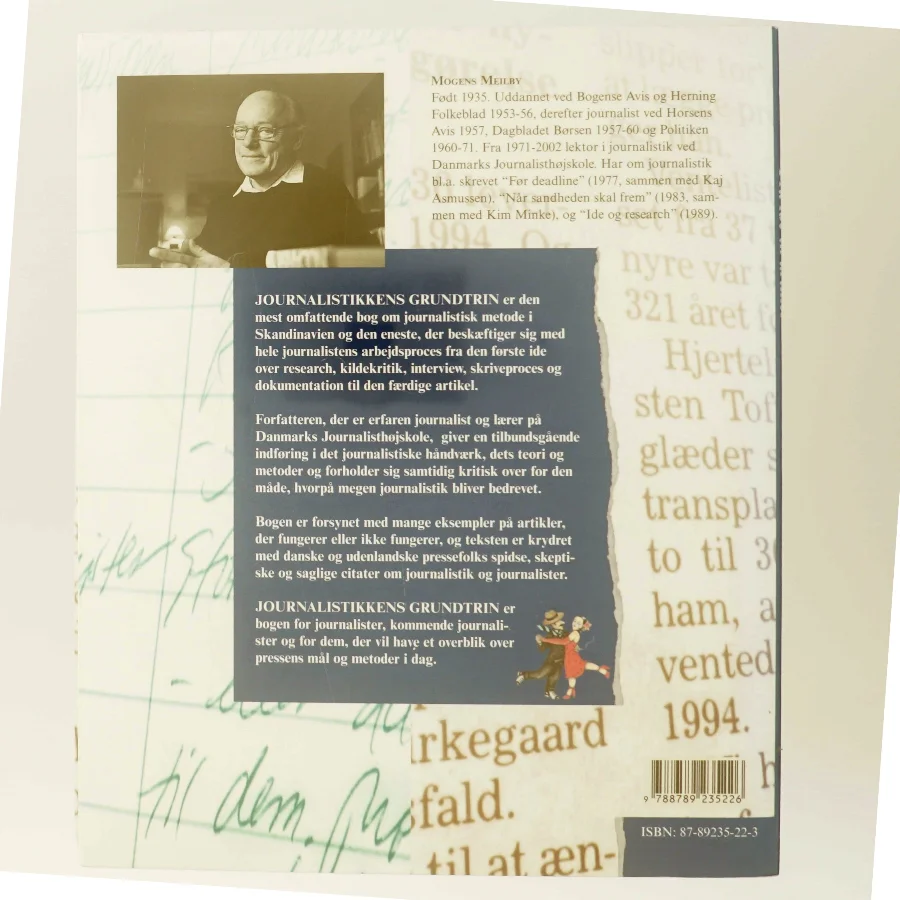 MOGENS MEILBY
Født 1935. Uddannet ved Bogense Avis og Herning
Folkeblad 1953-56, derefter journalist ved Horsens
Avis 1957, Dagbladet Børsen 1957-60 og Politiken
1960-71. Fra 1971-2002 lektor i journalistik ved
Danmarks Journalisthøjskole. Har om journalistik
bl.a. skrevet "Før deadline" (1977, sammen med Kaj
Asmussen), "Når sandheden skal frem" (1983, sam-
men med Kim Minke), og "Ide og research" (1989).
JOURNALISTIKKENS GRUNDTRIN er den
mest omfattende bog om journalistisk metode i
Skandinavien og den eneste, der beskæftiger sig med
hele journalistens arbejdsproces fra den første ide
over research, kildekritik, interview, skriveproces og
dokumentation til den færdige artikel.
Forfatteren, der er erfaren journalist og lærer på
Danmarks Journalisthøjskole, giver en tilbundsgående
indføring i det journalistiske håndværk, dets teori og
metoder og forholder sig samtidig kritisk over for den
måde, hvorpå megen journalistik bliver bedrevet.
Bogen er forsynet med mange eksempler på artikler,
der fungerer eller ikke fungerer, og teksten er krydret
med danske og udenlandske pressefolks spidse, skepti-
ske og saglige citater om journalistik og journalister.
JOURNALISTIKKENS GRUNDTRIN er
bogen for journalister, kommende journali-
ster og for dem, der vil have et overblik over
pressens mål og metoder i dag.
1994. Og
nyre var
321 året
Hjertel
sten Tof
glæder s
transpla
to til 3
ham, a
vented
1994.
rkegaard
sfald.
til at æn-
til dem.
9 788789 235226
ISBN: 87-89235-22-3